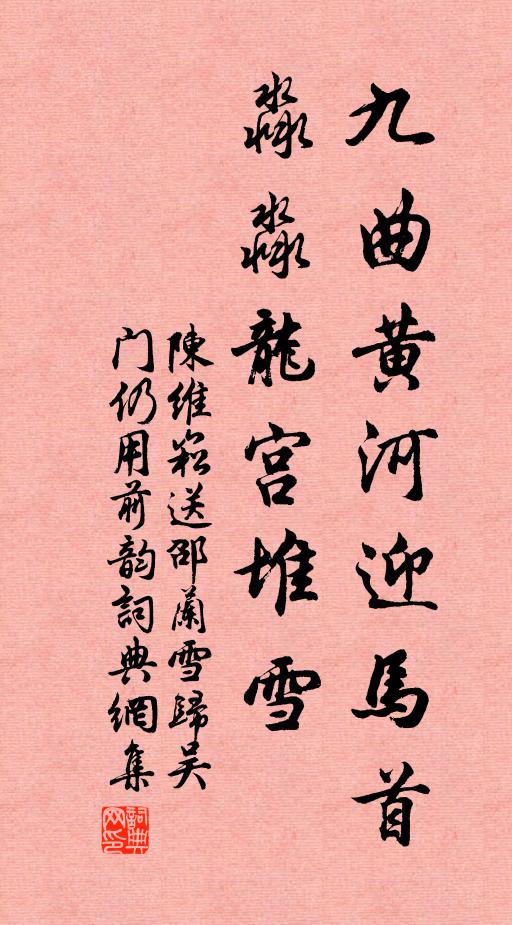 九曲黄河迎馬首
淼淼龍宫堆雪
陳維崧送邵蘭雪歸吴
门仍用前韵詞典網集
詞典
网印